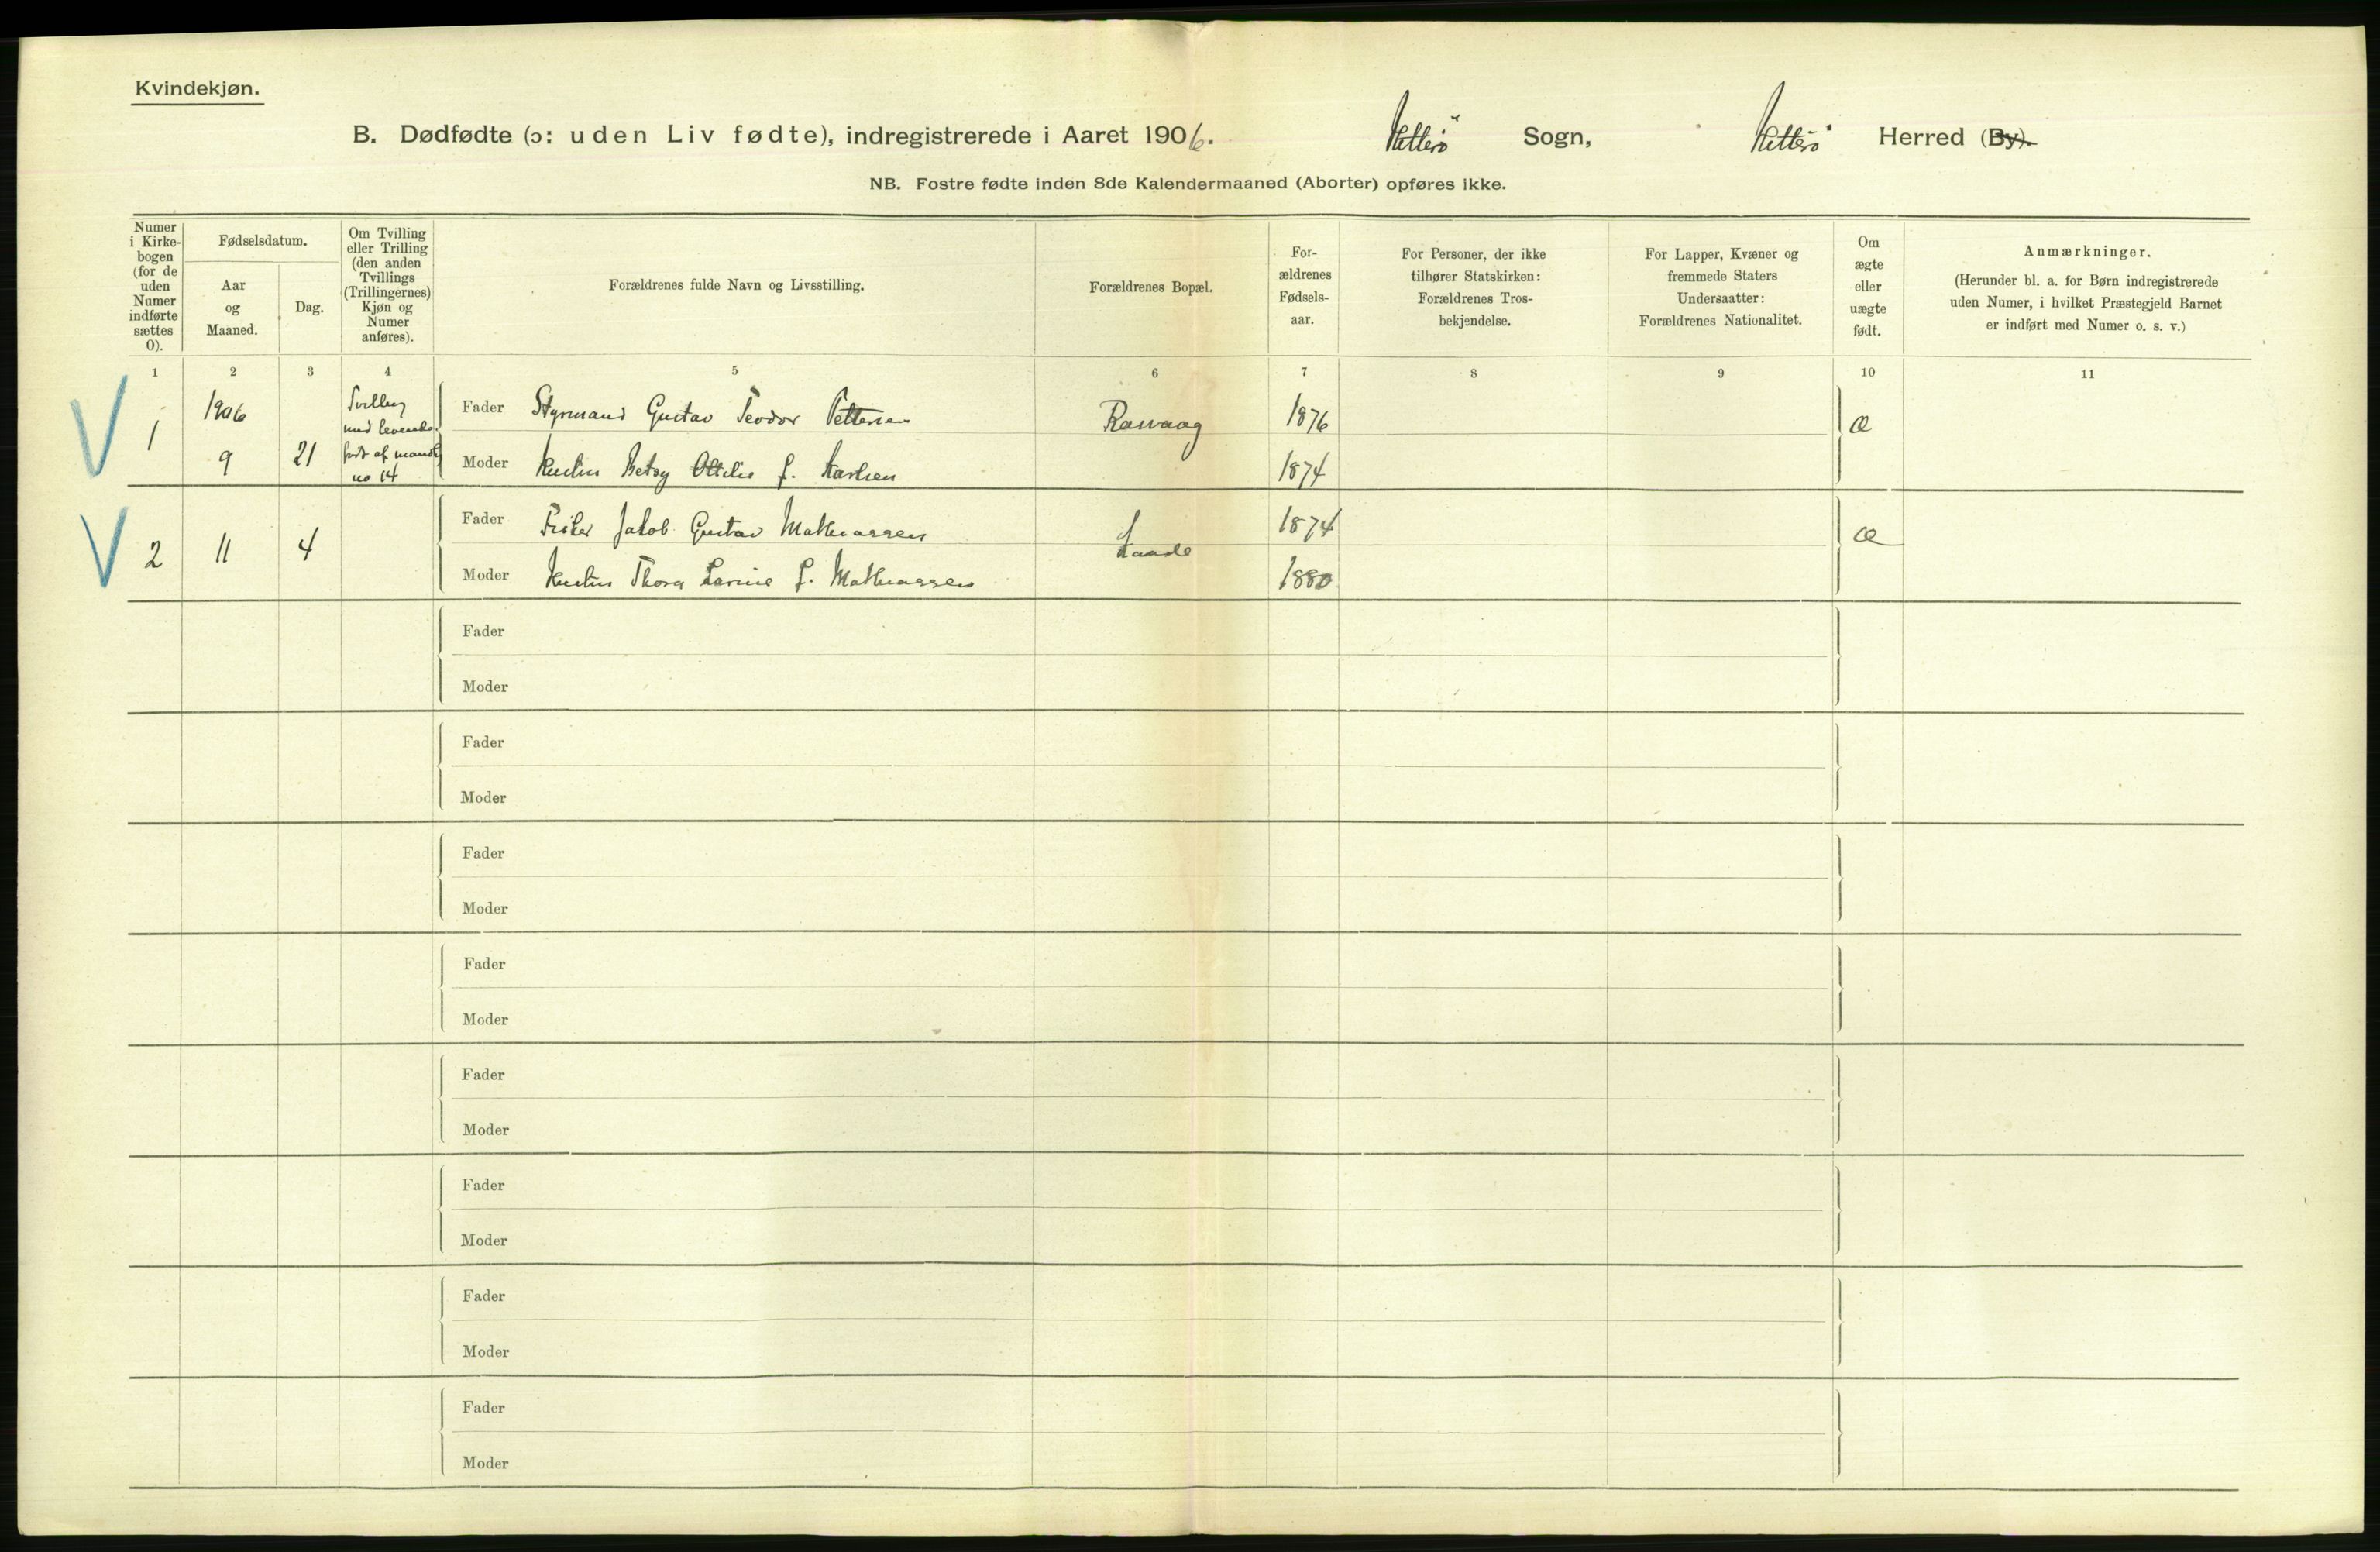 Kvindekjøn.
B. Dødfødte (ɔ: uden Liv fødte), indregistrerede i Aaret 1906. Hetterö Sogn, Hetterö Herred (By).
NB. Fostre fødte inden 8de Kalendermaaned (Aborter) opføres ikke.
Numer i Kirke-bogen (for de uden Numer indførte sættes 0).
Fødselsdatum.
Aar og Maaned.
Dag.
Om Tvilling eller Trilling (den anden Tvillings (Trillingernes) Kjøn og Numer anføres).
Forældrenes fulde Navn og Livsstilling.
Forældrenes Bopæl.
For-ældrenes Fødsels-aar.
For Personer, der ikke tilhører Statskirken: Forældrenes Tros-bekjendelse.
For Lapper, Kvæner og fremmede Staters Undersaatter: Forældrenes Nationalitet.
Om ægte eller uægte født.
Anmærkninger.
(Herunder bl. a. for Børn indregistrerede uden Numer, i hvilket Præstegjeld Barnet er indført med Numer o. s. v.)
1 2 3 4 5 6 7 8 9 10 11
1 1906 9 21 Tvilling med levende født af mandkj no 14
Fader Styrmand Gustav Teodor Pettersen Rasvaag 1876 æ
Moder Hustru Betsy Ottilie f. Karlsen 1874
2 11 4
Fader Fisker Jakob Gustav Mathiassen 1874 æ
Moder Hustru Thora Larine f. Mathiassen 1880
Fader
Moder
Fader
Moder
Fader
Moder
Fader
Moder
Fader
Moder
Fader
Moder
Fader
Moder
Fader
Moder